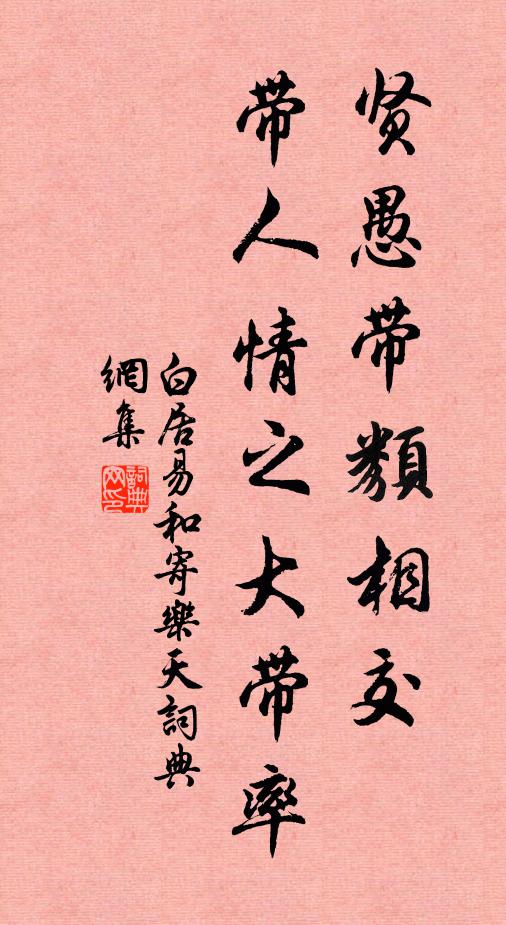 贤愚带類相交
带人情之大带率
白居易和寄樂天詞典
網集
詞典